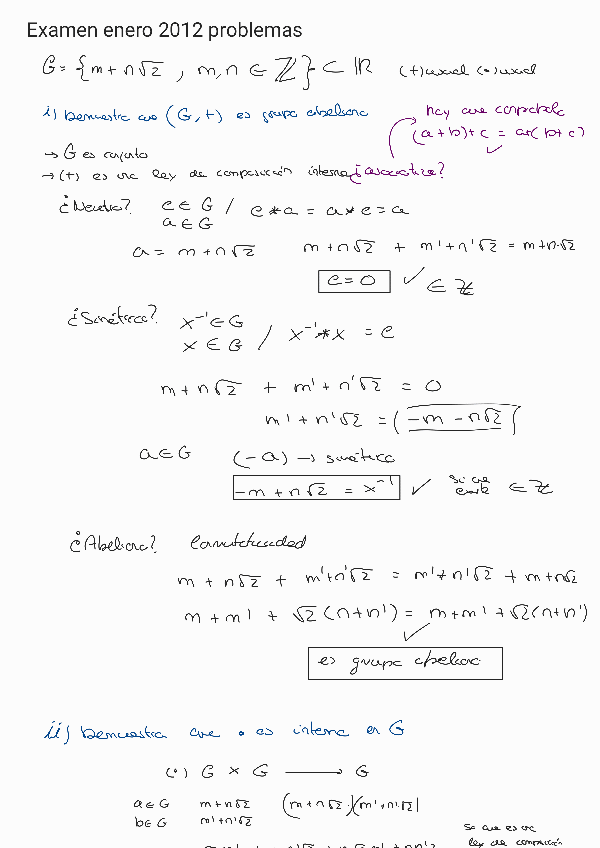 Examen enero 2012 problemas
G = {m+n√2 , m,n ∈ ℤ} ⊂ ℝ (+) usual (·) usual
i) Demuestra que (G,+) es grupo abeliano
hay que comprobarlo
(a+b)+c = a+(b+c) ✓
→ G es conjunto
→ (+) es una ley de composición interna ¿asociativa?
¿Neutro? e ∈ G / e*a = a*e = a
a ∈ G
a = m+n√2 m+n√2 + m'+n'√2 = m+n·√2
e=0 ✓ ∈ ℤ
¿Simétrico? x⁻¹ ∈ G
x ∈ G / x⁻¹*x = e
m+n√2 + m'+n'√2 = 0
m'+n'√2 = (-m-n√2)
a ∈ G (-a) → simétrico
-m+n√2 = x⁻¹ ✓ si que existe ∈ ℤ
¿Abeliano? Conmutatividad
m+n√2 + m'+n'√2 = m'+n'√2 + m+n√2
m+m' + √2(n+n') = m+m' + √2(n+n')
✓
es grupo abeliano
ii) Demuestra que · es interna en G
(·) G × G → G
a ∈ G m+n√2 (m+n√2)(m'+n'√2)
b ∈ G m'+n'√2
Si que es una
ley de composición